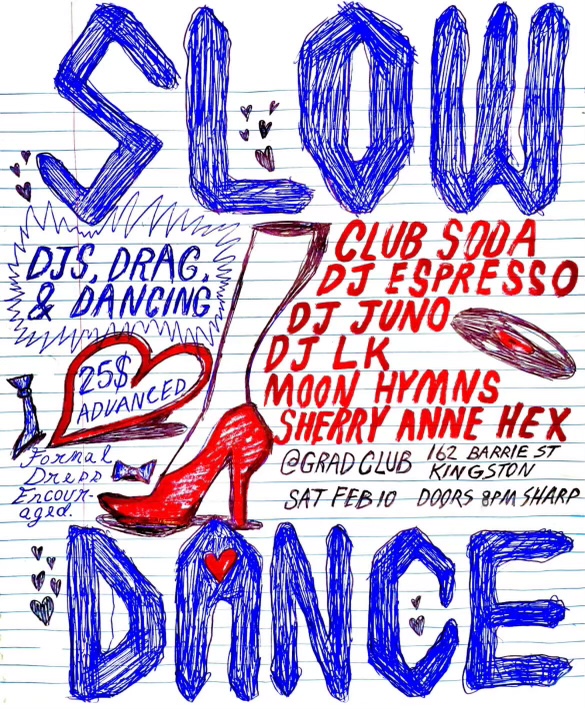 SLOW
DJS, DRAG,
& DANCING
25$
ADVANCED
Formal
Dress
Encour-
aged.
CLUB SODA
DJ ESPRESSO
DJ JUNO
DJ LK
MOON HYMNS
SHERRY ANNE HEX
@GRAD CLUB 162 BARRIE ST
KINGSTON
SAT FEB 10 DOORS 8PM SHARP
DANCE